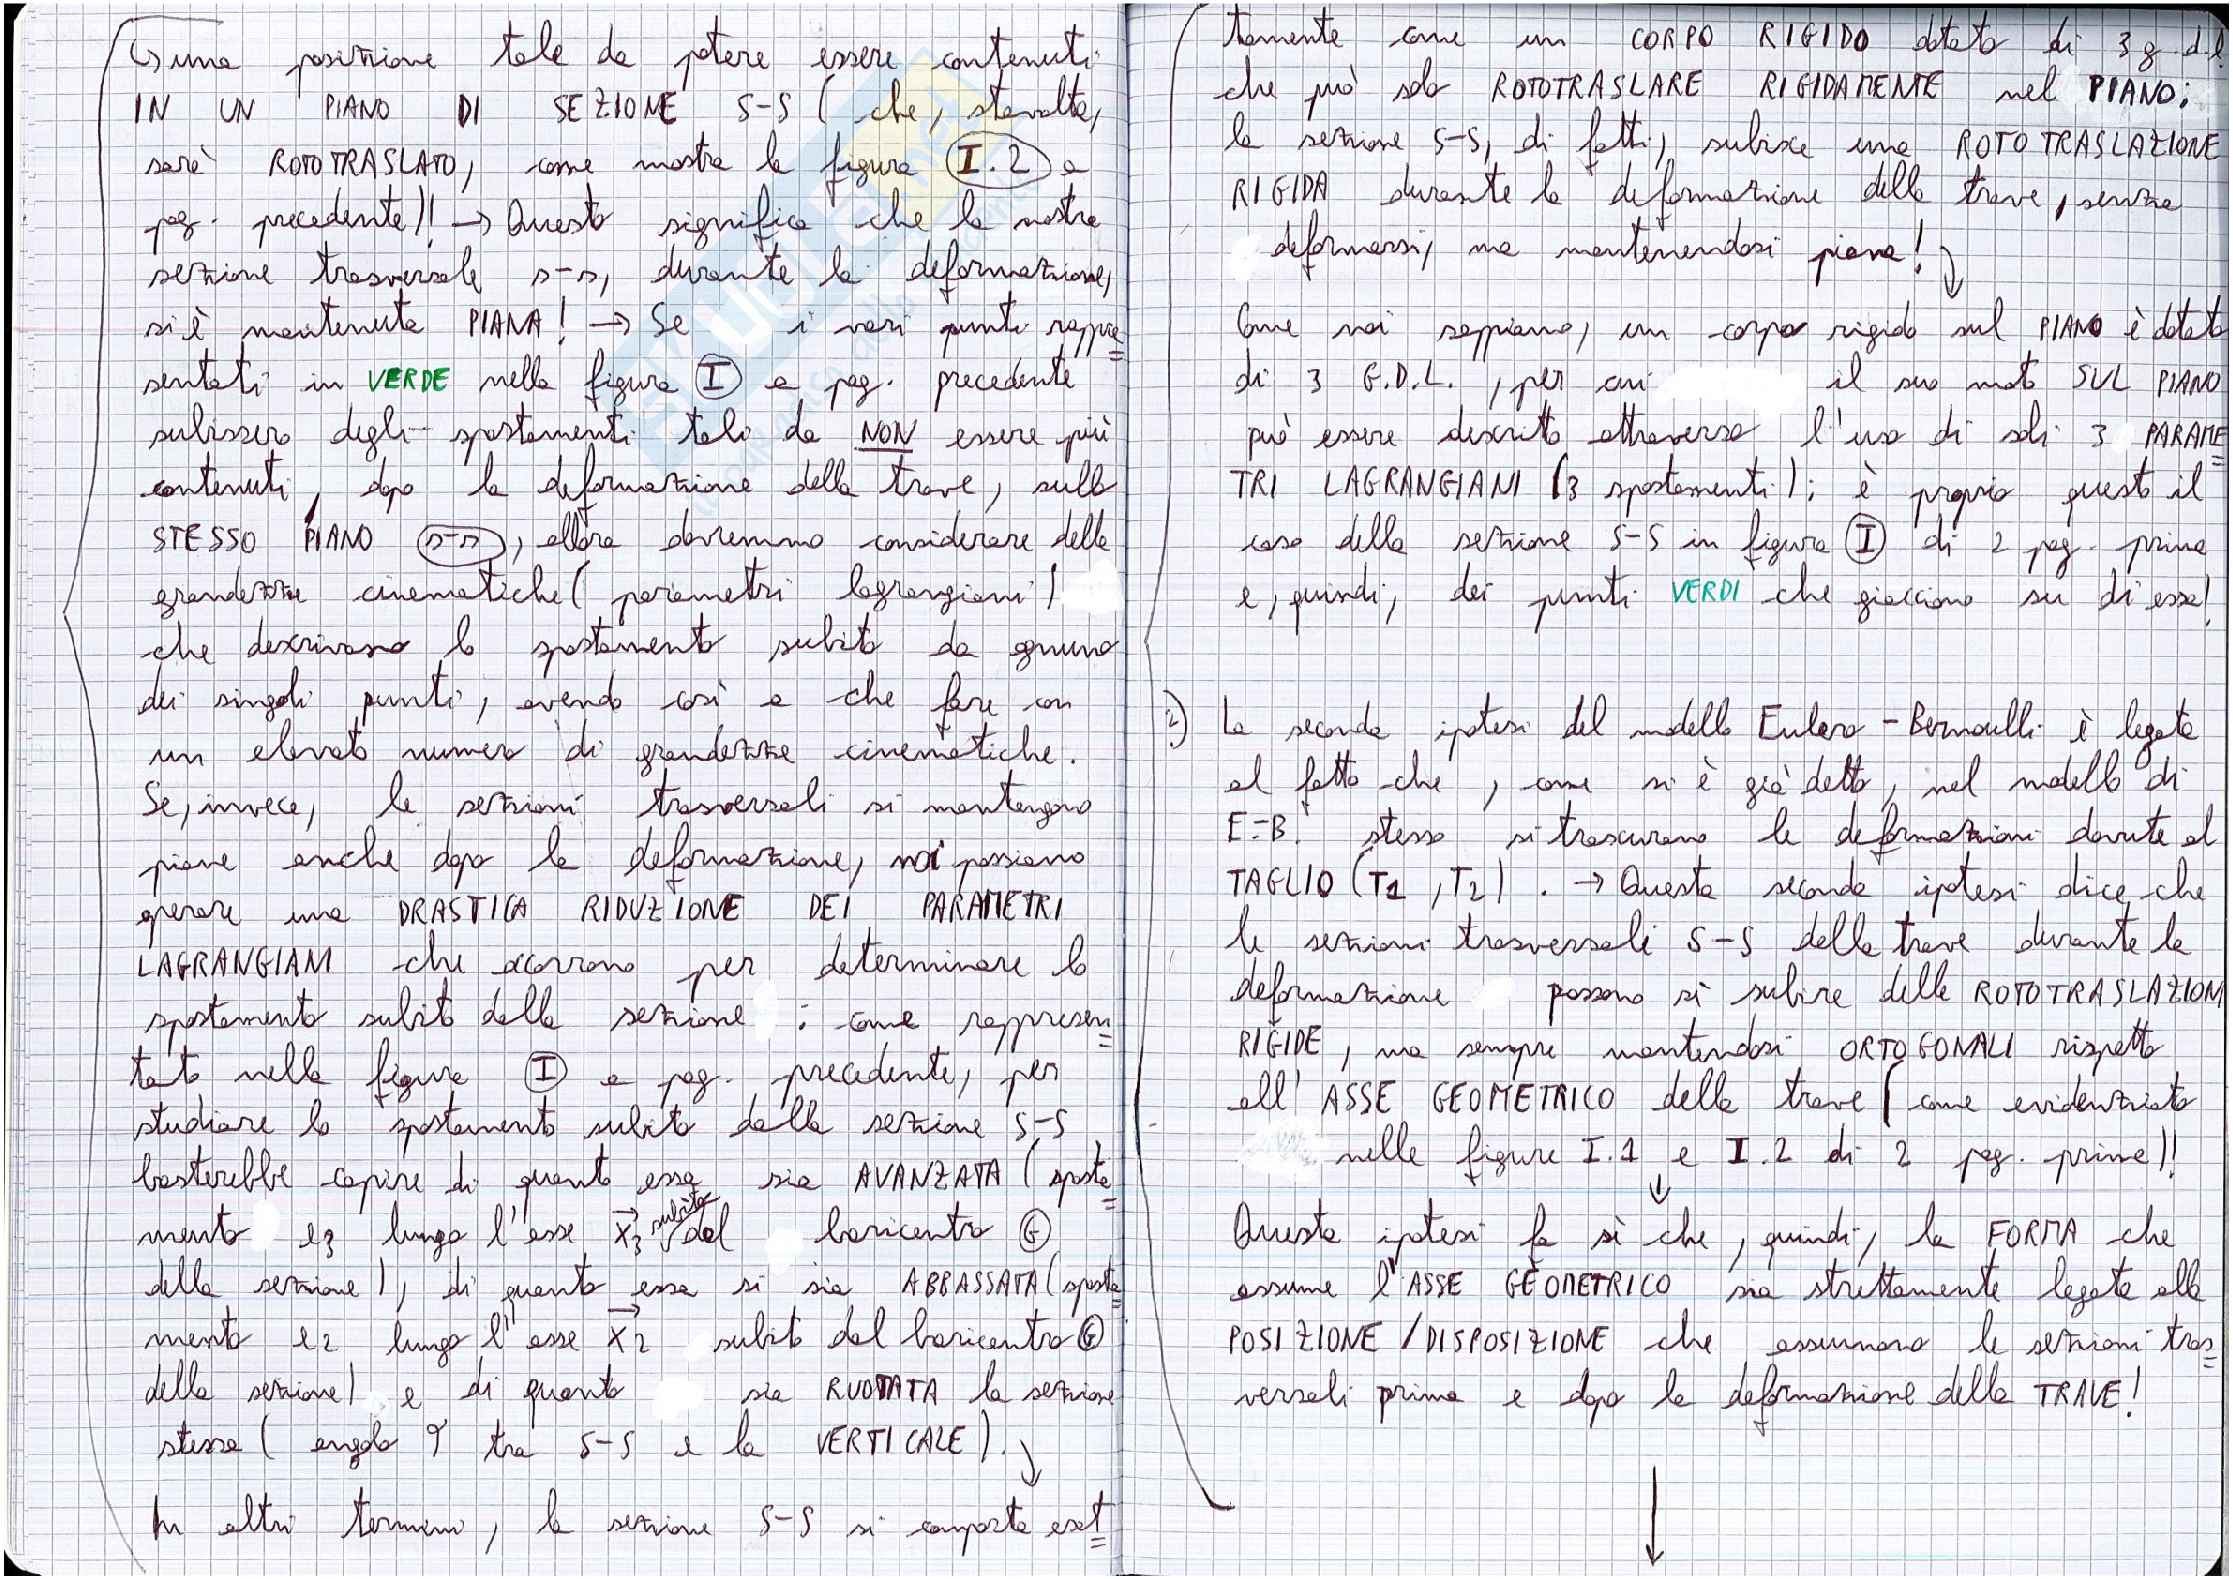 ↳ una posizione tale da potere essere contenuti
IN UN PIANO DI SEZIONE S-S (che, stavolta,
sarà ROTOTRASLATO, come mostra la figura I.2 a
pag. precedente)! → Questo significa che la nostra
sezione trasversale s-s, durante la deformazione,
si è mantenuta PIANA! → Se i vari punti rappre=
sentati in VERDE nella figura I a pag. precedente
subissero degli spostamenti tali da NON essere più
contenuti, dopo la deformazione della trave, sullo
STESSO PIANO s-s, allora dovremmo considerare delle
grandezze cinematiche (parametri lagrangiani)
che descrivano lo spostamento subito da ognuno
dei singoli punti, avendo così a che fare con
un elevato numero di grandezze cinematiche.
Se, invece, le sezioni trasversali si mantengono
piane anche dopo la deformazione, noi possiamo
operare una DRASTICA RIDUZIONE DEI PARAMETRI
LAGRANGIANI che occorrono per determinare lo
spostamento subito dalla sezione : come rappresen=
tato nella figura I a pag. precedente, per
studiare lo spostamento subito dalla sezione S-S
basterebbe capire di quanto essa sia AVANZATA (sposta=
mento e3 lungo l'asse x3 subito dal baricentro G
della sezione), di quanto essa si sia ABBASSATA (sposta=
mento e2 lungo l'asse x2 subito dal baricentro G
della sezione) e di quanto sia RUOTATA la sezione
stessa (angolo φ tra S-S e la VERTICALE).
In altri termini, la sezione S-S si comporta esat=
tamente come un CORPO RIGIDO dotato di 3 g.d.l.
che può solo ROTOTRASLARE RIGIDAMENTE nel PIANO;
la sezione S-S, di fatti, subisce una ROTOTRASLAZIONE
RIGIDA durante la deformazione della trave, senza
deformarsi, ma mantenendosi piana!
Come noi sappiamo, un corpo rigido sul PIANO è dotato
di 3 G.D.L., per cui il suo moto SUL PIANO
può essere descritto attraverso l'uso di soli 3 PARAME=
TRI LAGRANGIANI (3 spostamenti); è proprio questo il
caso della sezione S-S in figura I di 2 pag. prima
e, quindi, dei punti VERDI che giacciono su di essa!
2) La seconda ipotesi del modello Eulero-Bernoulli è legata
al fatto che, come si è già detto, nel modello di
E-B. stesso si trascurano le deformazioni dovute al
TAGLIO (T1, T2). → Questa seconda ipotesi dice che
le sezioni trasversali S-S della trave durante la
deformazione possono sì subire delle ROTOTRASLAZIONI
RIGIDE, ma sempre mantendosi ORTOGONALI rispetto
all'ASSE GEOMETRICO della trave (come evidenziato
nelle figure I.1 e I.2 di 2 pag. prima)!
Questa ipotesi fa sì che, quindi, la FORMA che
assume l'ASSE GEOMETRICO sia strettamente legata alla
POSIZIONE/DISPOSIZIONE che assumono le sezioni tras=
versali prima e dopo la deformazione della TRAVE!